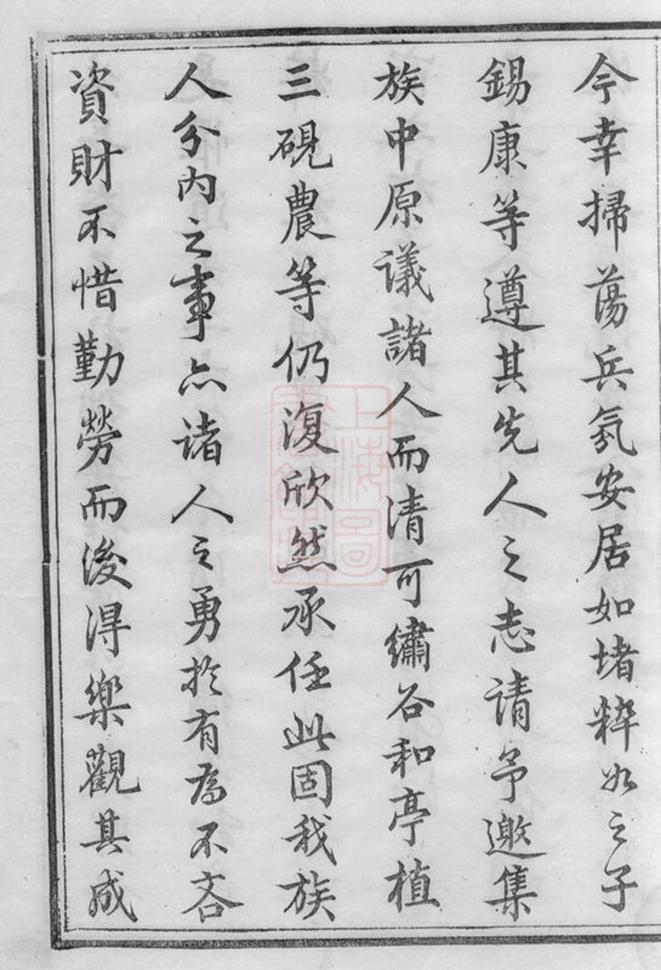 今幸掃蕩兵氛安居如堵粹如之子
錫康等遵其先人之志請予邀集
族中原議諸人而清可繡谷和亭植
三硯農等仍復欣然承任此固我族
人分内之事亦諸人之勇於有為不吝
資財不惜勤勞而後得樂觀其成
上海圖